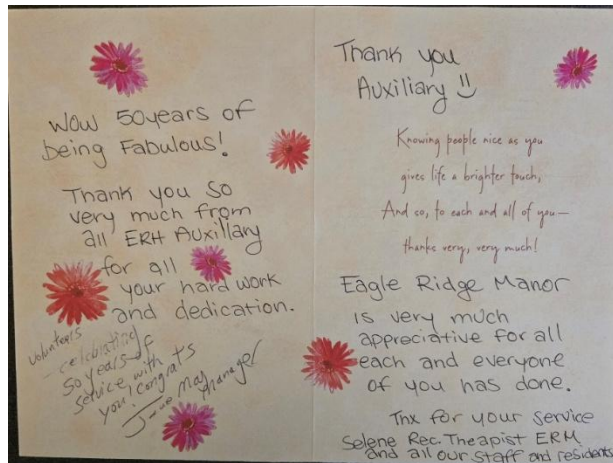 Wow 50years of
being Fabulous!
Thank you so
very much from
all ERH Auxillary
for all
your hard work
and dedication.
Volunteers
celebrating
50 years of
service with
you! Congrats
Manager
Thank you
Auxiliary !!
Knowing people nice as you
gives life a brighter touch,
And so, to each and all of you—
thanks very, very much!
Eagle Ridge Manor
is very much
appreciative for all
each and everyone
of you has done.
Thx for your service
Selene Rec. Theapist ERM
and all our staff and resident